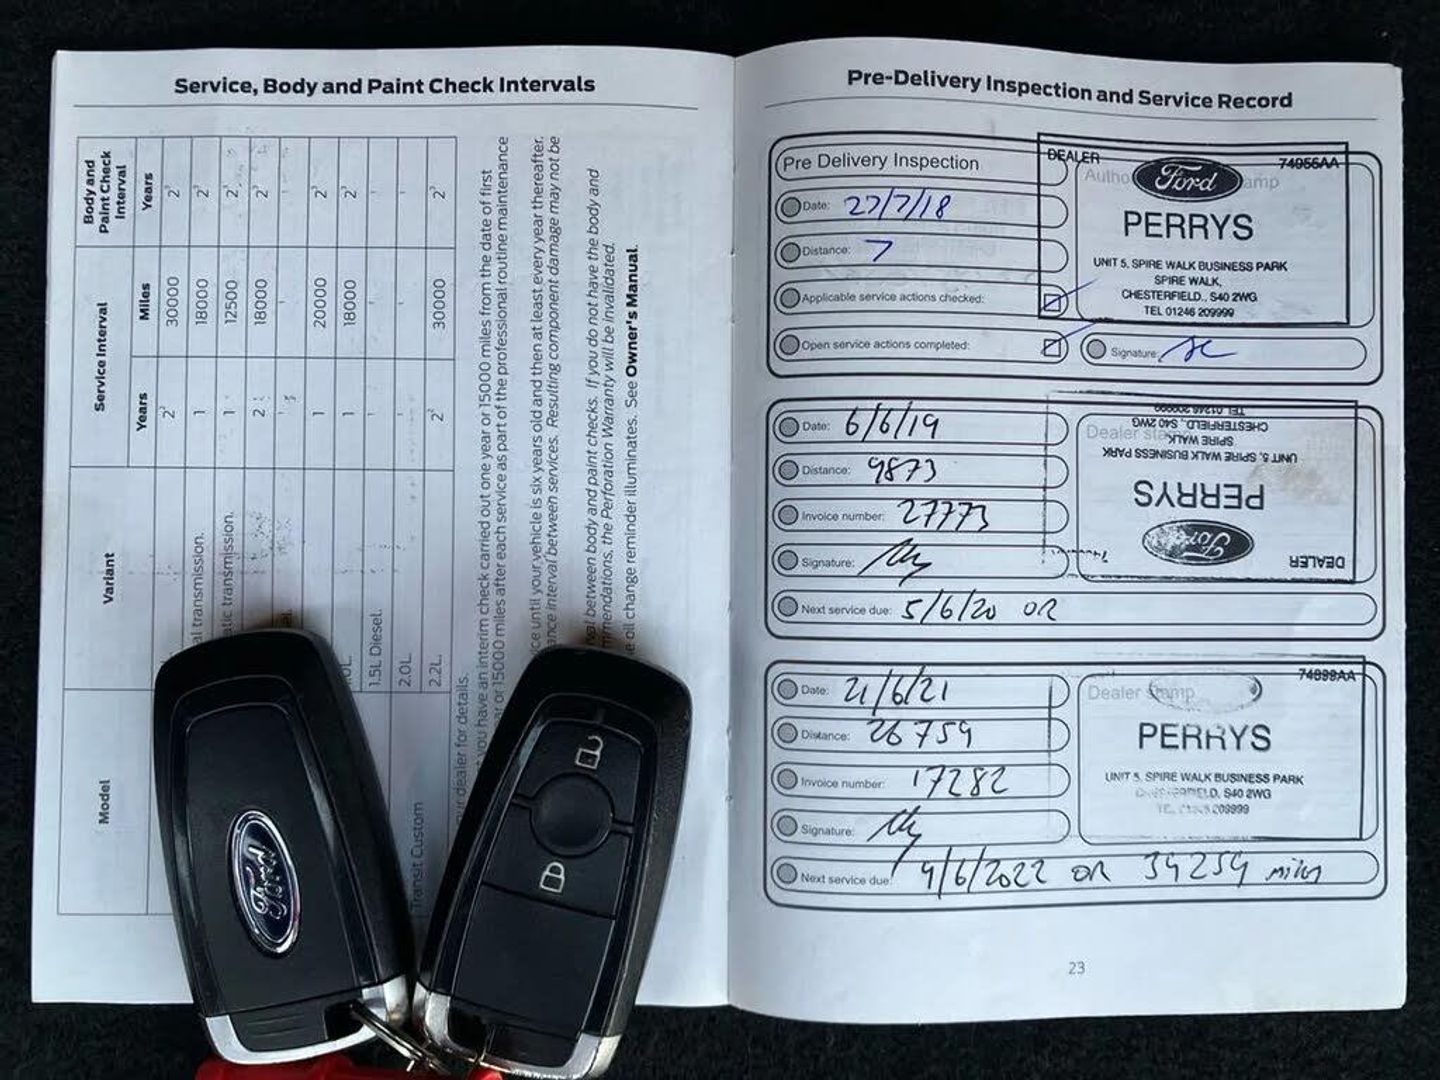 Service, Body and Paint Check Intervals
Model
Variant
Service Interval
Body and Paint Check Interval
Years
Miles
Years
2²
30000
2³
al transmission.
1
18000
2³
atic transmission.
1
12500
2³
2
18000
2³
1
20000
2³
1
18000
2³
1.5L Diesel.
2.0L.
Transit Custom
2.2L.
2²
30000
2³
ur dealer for details.
you have an interim check carried out one year or 15000 miles from the date of first
ar or 15000 miles after each service as part of the professional routine maintenance
ice until your vehicle is six years old and then at least every year thereafter.
ance interval between services. Resulting component damage may not be
val between body and paint checks. If you do not have the body and
mmendations, the Perforation Warranty will be invalidated.
e oil change reminder illuminates. See Owner's Manual.
Pre-Delivery Inspection and Service Record
Pre Delivery Inspection
Date: 27/7/18
Distance: 7
Applicable service actions checked:
Open service actions completed:
Signature:
DEALER
74056AA
Ford
PERRYS
UNIT 5, SPIRE WALK BUSINESS PARK
SPIRE WALK,
CHESTERFIELD., S40 2WG
TEL 01246 209999
Date: 6/6/19
Distance: 9873
Invoice number: 27773
Signature:
Next service due: 5/6/20 OR
Dealer stamp
DEALER
Ford
PERRYS
UNIT 5, SPIRE WALK BUSINESS PARK
SPIRE WALK
CHESTERFIELD., S40 2WG
TEL 01246 209999
Date: 21/6/21
Distance: 26759
Invoice number: 17282
Signature:
Next service due: 4/6/2022 OR 39259 miles
Dealer stamp
74899AA
PERRYS
UNIT 5, SPIRE WALK BUSINESS PARK
CHESTERFIELD, S40 2WG
TEL 01246 209999
23
Ford